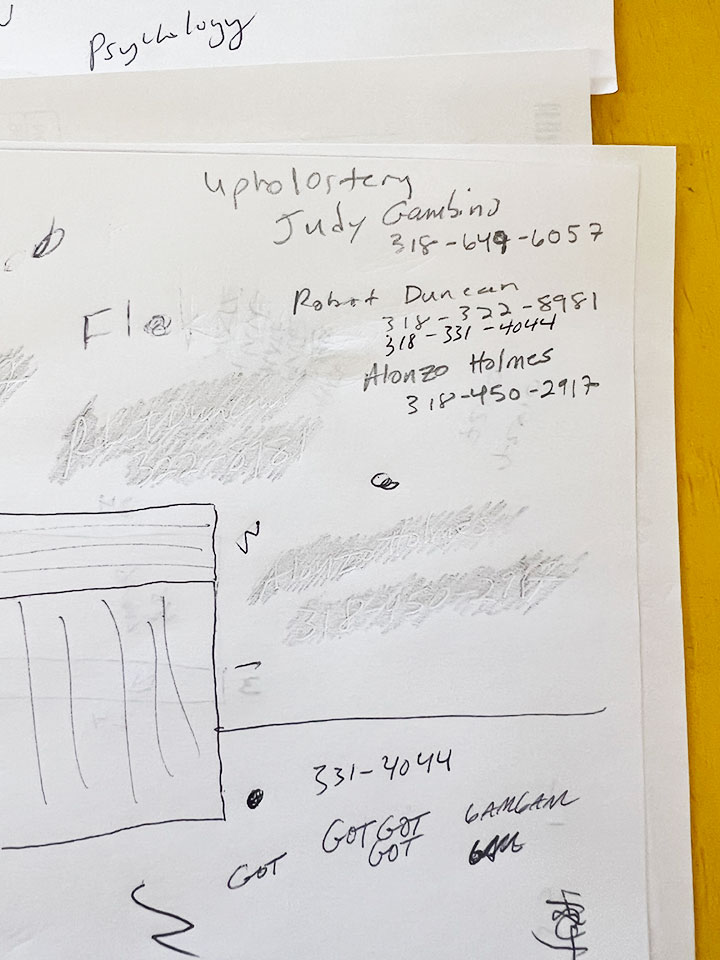 Psychology
Upholostery
Judy Gambino
318-649-6057
Robert Duncan
318-322-8981
318-331-4044
Alonzo Holmes
318-450-2917
Alonzo Holmes
318-450-2917
331-4044
GOT GOT
GOT
GOT
6AM6AM
6AM